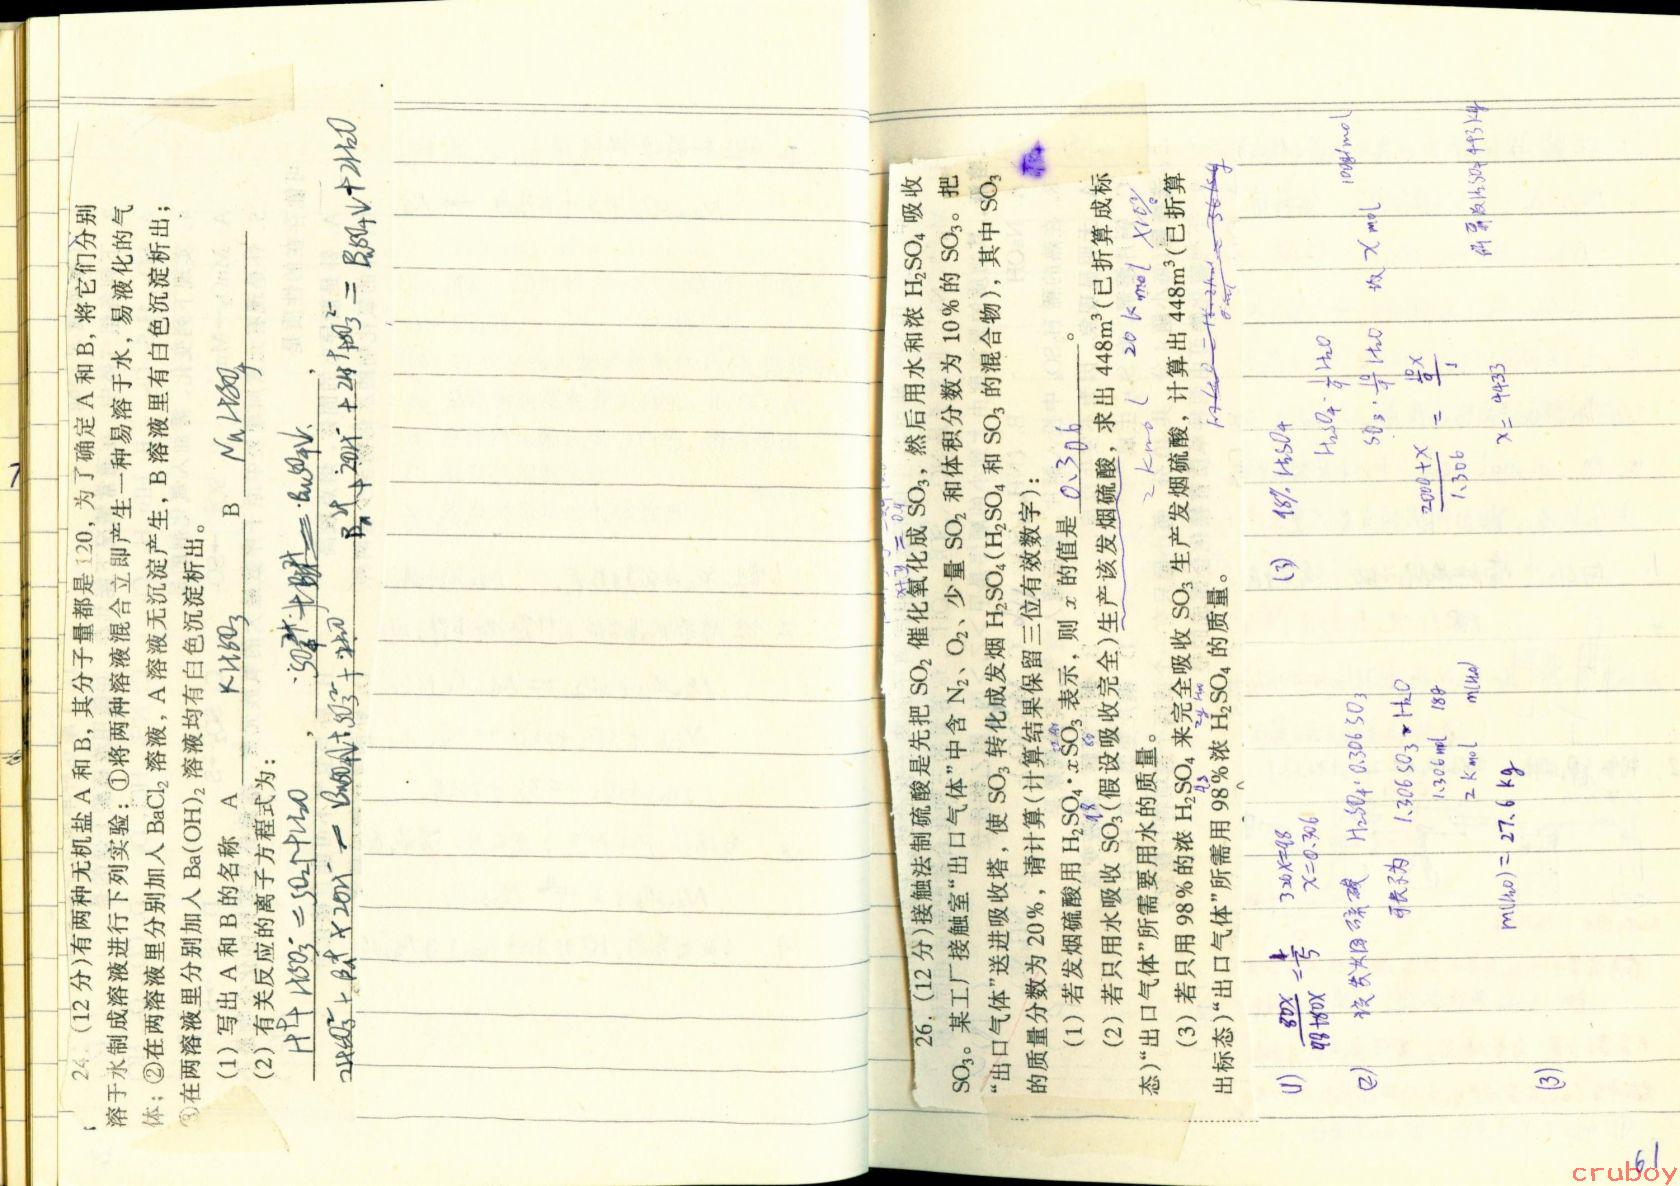 24. (12分)有两种无机盐A和B,其分子量都是120,为了确定A和B,将它们分别
溶于水制成溶液进行下列实验:①将两种溶液混合立即产生一种易溶于水,易液化的气
体;②在两溶液里分别加入BaCl₂溶液,A溶液无沉淀产生,B溶液里有白色沉淀析出;
③在两溶液里分别加入Ba(OH)₂溶液均有白色沉淀析出。
(1) 写出A和B的名称 A KHSO₃ B NaHSO₄
(2) 有关反应的离子方程式为:
H⁺+HSO₃⁻=SO₂↑+H₂O, SO₄²⁻+Ba²⁺=BaSO₄↓,
2HSO₃⁻+Ba²⁺+2OH⁻=BaSO₃↓+SO₃²⁻+2H₂O
Ba²⁺+2OH⁻+2H⁺+SO₄²⁻=BaSO₄↓+2H₂O
26. (12分)接触法制硫酸是先把SO₂催化氧化成SO₃,然后用水和浓H₂SO₄吸收
SO₃。某工厂接触室“出口气体”中含N₂、O₂、少量SO₂和体积分数为10%的SO₃。把
“出口气体”送进吸收塔,使SO₃转化成发烟H₂SO₄(H₂SO₄和SO₃的混合物),其中SO₃
的质量分数为20%,请计算(计算结果保留三位有效数字):
(1) 若发烟硫酸用H₂SO₄·xSO₃表示,则x的值是 0.306 。
(2) 若只用水吸收SO₃(假设吸收完全)生产该发烟硫酸,求出448m³(已折算成标
2 kmol 20 kmol ×10%
态)“出口气体”所需要用水的质量。
(3) 若只用98%的浓H₂SO₄来完全吸收SO₃生产发烟硫酸,计算出448m³(已折算
出标态)“出口气体”所需用98%浓H₂SO₄的质量。
(1) 80x/98+80x=1/5 320x=98
x=0.306
(2) H₂SO₄·0.306SO₃
可表示为 1.306SO₃·H₂O
1.306mol 18g
2 kmol m(H₂O)
m(H₂O)=27.6 kg
(3)
(3) 98% H₂SO₄ H₂SO₄·1/9H₂O
SO₃·10/9H₂O 设 x mol
2000+x/1.306=10/9x/1
x=4433
61
cruboy